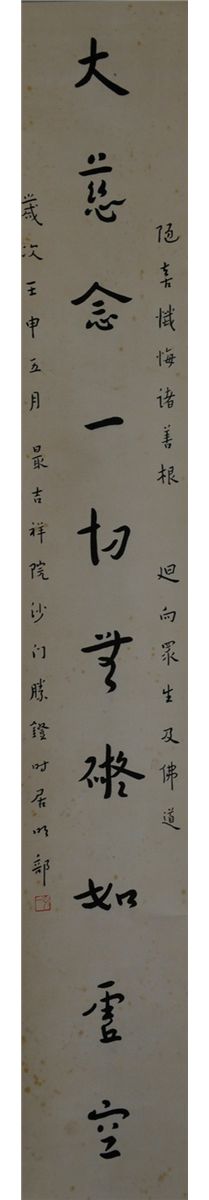 随喜懺悔諸善根 迴向眾生及佛道
大慈念一切無礙如虛空
歲次壬申五月 最吉祥院沙门勝鐙时居